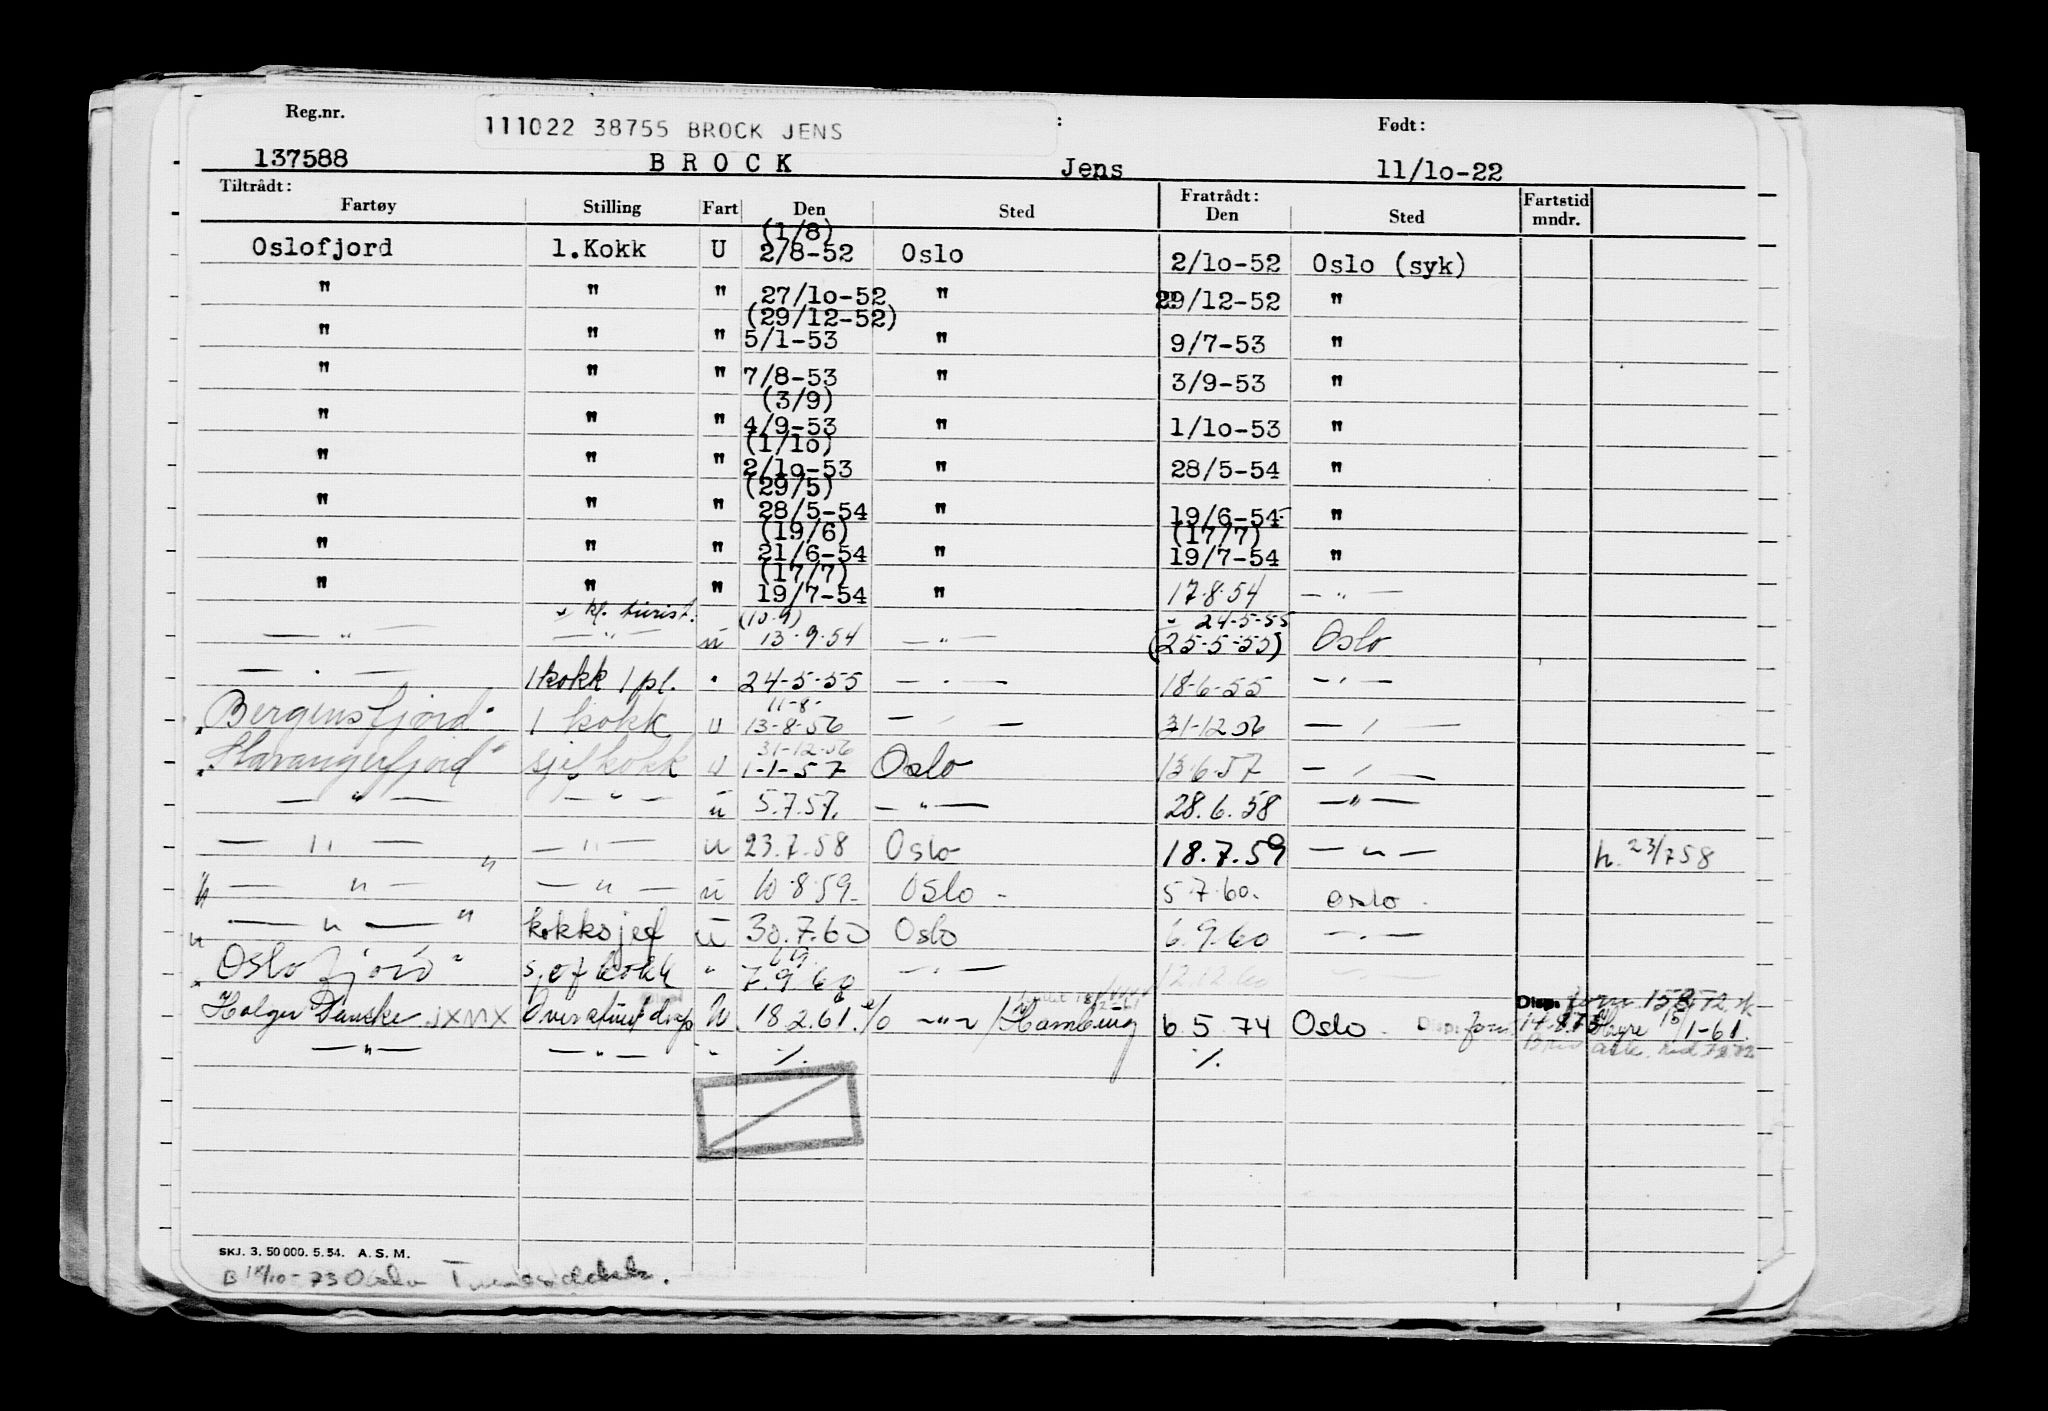 Reg.nr. 111022 38755 BROCK JENS : Født:
137588 B R O C K Jens 11/1o-22
Tiltrådt: Fratrådt:
Fartøy Stilling Fart Den Sted Den Sted Fartstid mndr.
(1/8)
Oslofjord 1.Kokk U 2/8-52 Oslo 2/1o-52 Oslo (syk)
" " " 27/1o-52 " 29/12-52 "
(29/12-52)
" " " 5/1-53 " 9/7-53 "
" " " 7/8-53 " 3/9-53 "
(3/9)
" " " 4/9-53 " 1/1o-53 "
(1/1o)
" " " 2/1o-53 " 28/5-54 "
(29/5)
" " " 28/5-54 " 19/6-54 "
(19/6) (17/7)
" " " 21/6-54 " 19/7-54 "
(17/7)
" " " 19/7-54 " 17.8.54 — " —
" kl. turist. (10.9) 24-5-55
— " — — " — u 13.9.54 — " — (25-5-55) Oslo
— " — 1 kokk 1 pl. " 24-5-55 — " — 18-6-55 — " —
11-8-
"Bergensfjord" 1 kokk u 13-8-56 — " — 31-12 56 — " —
31-12-56
"Stavangerfjord" sjefkokk u 1-1-57 Oslo 13.6.57 — " —
— " — — " — u 5.7.57. — " — 28.6.58 — " —
— " — — " — u 23.7.58 Oslo 18.7.59 — " — h. 23/7 58
" — " — " — " — u 10.8.59- Oslo - 5.7.60. Oslo -
— " — " kokksjef u 30.7.60 Oslo 6.9.60 — " —
6/9.
"Oslofjord" sjefkokk " 7.9 60 — " — 12.12.60 — " —
Disp. forn. 15
Holger Danske JXMX Overstuert U 18.2.61. — " — / Hamburg 6.5.74 Oslo Disp. forn 14-8-73 Høyre 15/1-61.
— " — — " — " ./. ./.
SKJ. 3. 50 000. 5. 54. A. S. M.
B 18/10-73 Oslo